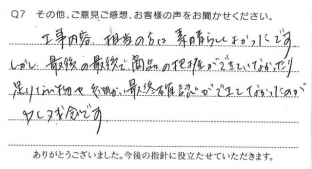 Q7 その他、ご意見ご感想、お客様の声をお聞かせください。
工事内容、担当の方は 素晴らしくよかったです
しかし 最後の最後で 商品の把握ができていなかったり
足りない物や 最終確認ができてなかったのが
少し残念です
ありがとうございました。今後の指針に役立たせていただきます。